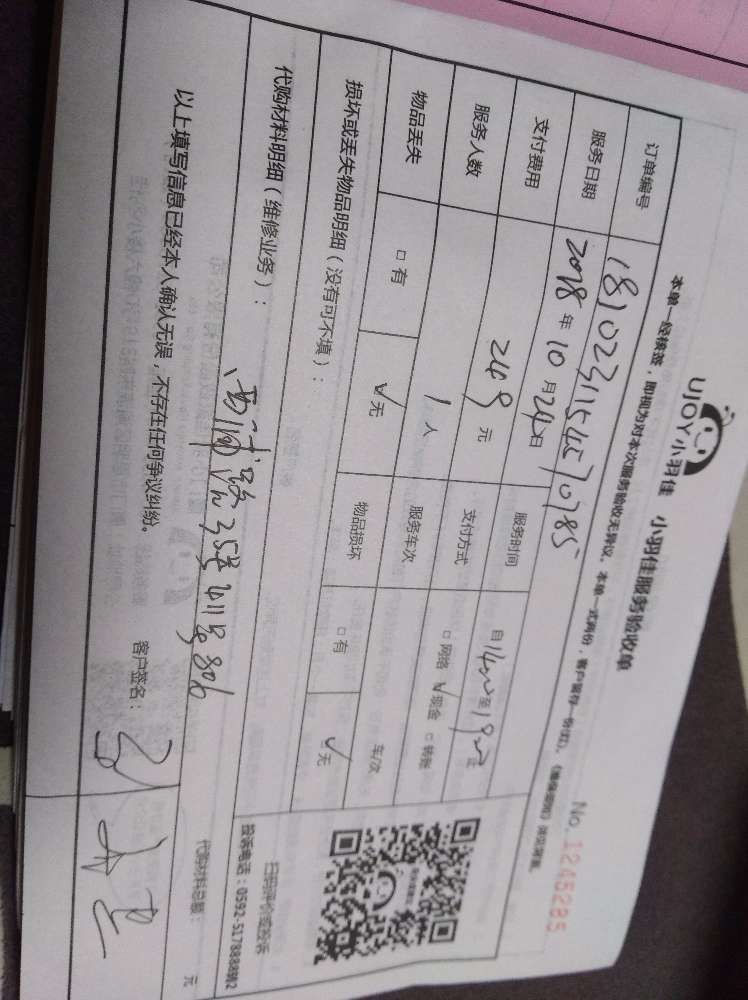 UJOY小羽佳 小羽佳服务验收单
本单一经核签，即视为对本次服务验收无异议。本单一式两份，客户留存一份(红)。
No. 1245285
订单编号 1810231154570785
服务日期 2018年10月24日 服务时间 自14:00至19:00止
支付费用 249元 支付方式 □网络 ☑现金 □转账
服务人数 1人 服务车次 车/次
物品丢失 □有 ☑无 物品损坏 □有 ☑无
损坏或丢失物品明细（没有可不填）：
代购材料明细（维修业务）：
代购材料总额： 元
扫码评价或投诉
投诉电话：0592-5178888转2
以上填写信息已经本人确认无误，不存在任何争议纠纷。
客户签名：